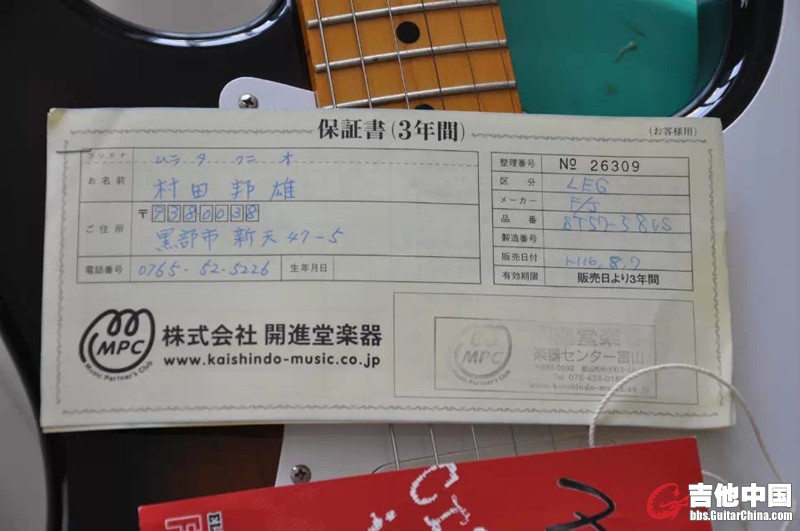 保証書(3年間)
(お客様用)
フリガナ ムラタ クニオ
お名前 村田 邦雄
〒9380038
ご住所 黒部市 新天 47-5
電話番号 0765-52-5226 生年月日
整理番号 No 26309
区分 LEG
メーカー F/J
品番 ST57-58US
製造番号
販売日付 H16.8.7
有効期限 販売日より3年間
MPC
Music Partner's Club
株式会社 開進堂楽器
www.kaishindo-music.co.jp
MPC
楽器センター富山
www.kaishindo-music.co.jp
吉他中国
bbs.GuitarChina.com